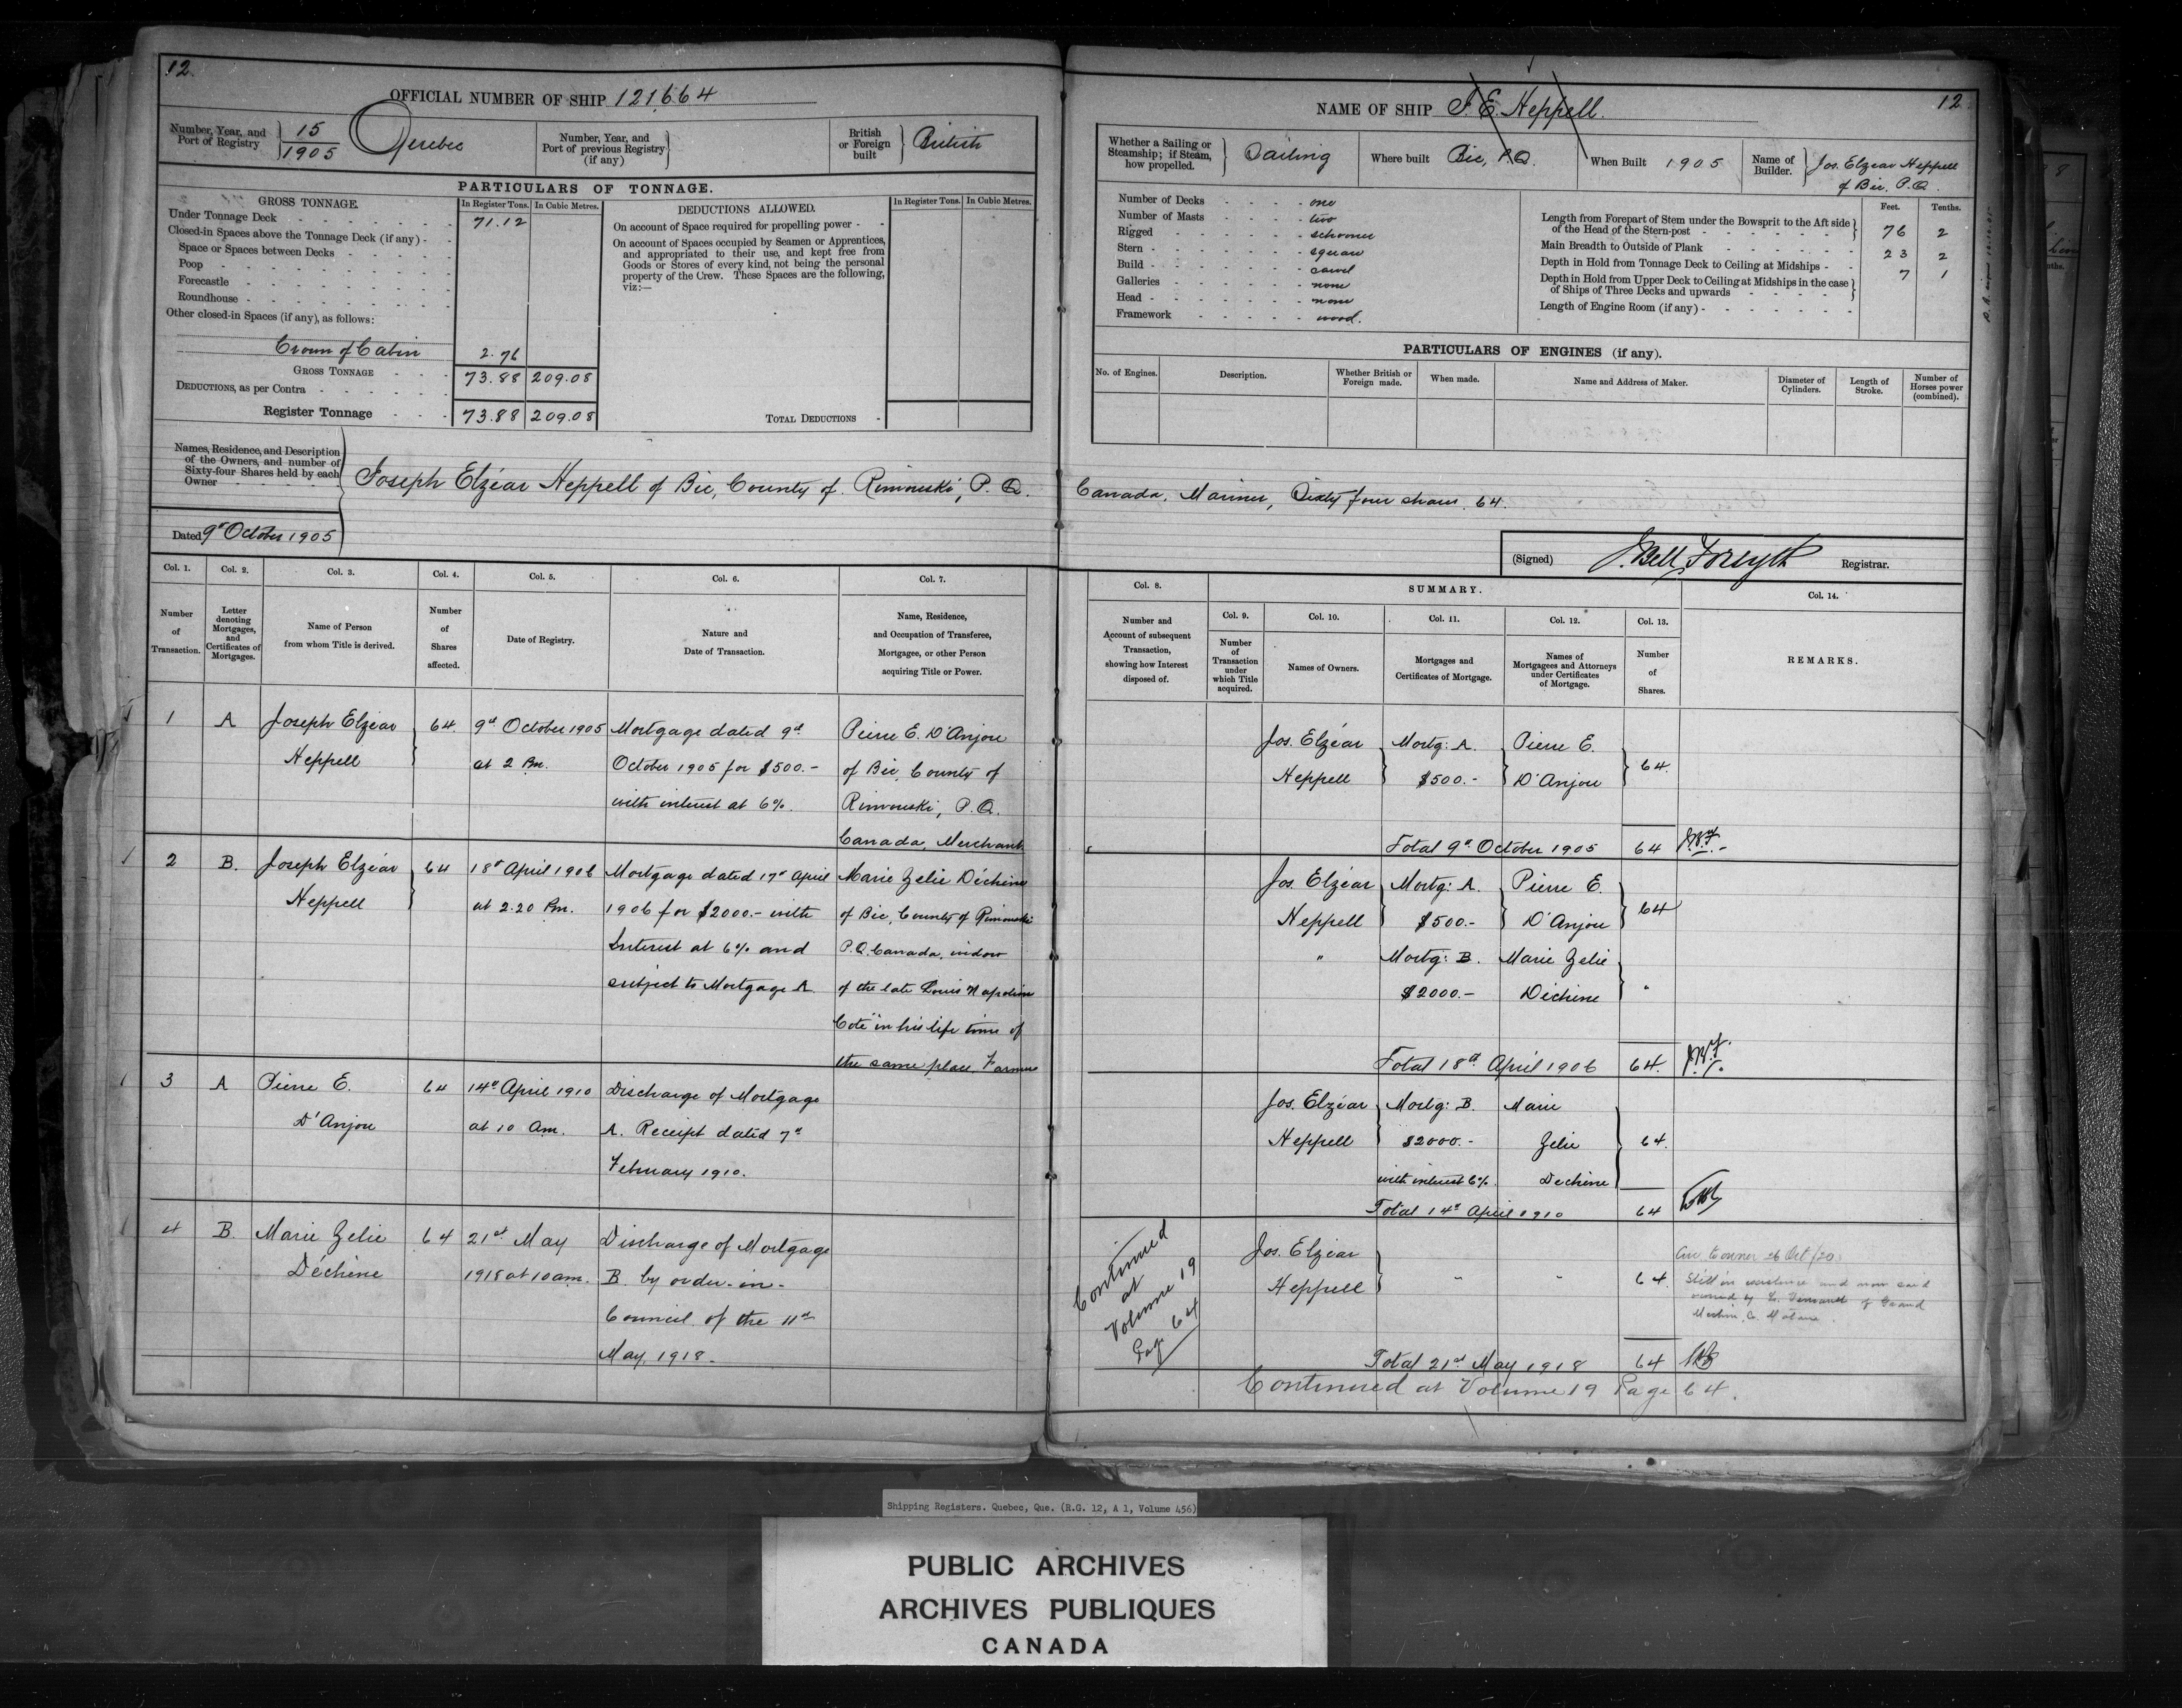 12.
OFFICIAL NUMBER OF SHIP 121664
Number, Year, and
Port of Registry
15
1905
Quebec
Number, Year, and
Port of previous Registry
(if any)
British
or Foreign
built
British
PARTICULARS OF TONNAGE.
GROSS TONNAGE.
In Register Tons.
In Cubic Metres.
Under Tonnage Deck
71.12
Closed-in Spaces above the Tonnage Deck (if any)
Space or Spaces between Decks
Poop
Forecastle
Roundhouse
Other closed-in Spaces (if any), as follows:
Crown of Cabin
2.76
GROSS TONNAGE
73.88
209.08
DEDUCTIONS, as per Contra
Register Tonnage
73.88
209.08
DEDUCTIONS ALLOWED.
In Register Tons.
In Cubic Metres.
On account of Space required for propelling power
On account of Spaces occupied by Seamen or Apprentices,
and appropriated to their use, and kept free from
Goods or Stores of every kind, not being the personal
property of the Crew. These Spaces are the following,
viz:—
TOTAL DEDUCTIONS
Names, Residence, and Description
of the Owners, and number of
Sixty-four Shares held by each
Owner
Joseph Elzéar Heppell of Bic, County of Rimouski, P.Q.
Dated 9th October 1905
Col. 1.
Number
of
Transaction.
Col. 2.
Letter
denoting
Mortgages,
and
Certificates of
Mortgages.
Col. 3.
Name of Person
from whom Title is derived.
Col. 4.
Number
of
Shares
affected.
Col. 5.
Date of Registry.
Col. 6.
Nature and
Date of Transaction.
Col. 7.
Name, Residence,
and Occupation of Transferee,
Mortgagee, or other Person
acquiring Title or Power.
1
A
Joseph Elzéar
Heppell
64.
9th October 1905
at 2 Pm.
Mortgage dated 9th
October 1905 for $500.-
with interest at 6%.
Pierre E. D'Anjou
of Bic, County of
Rimouski, P.Q.
Canada, Merchant
2
B.
Joseph Elzéar
Heppell
64
18th April 1906
at 2.20 Pm.
Mortgage dated 17th April
1906 for $2000.- with
Interest at 6% and
subject to Mortgage A.
Marie Zelie Déchène
of Bic, County of Rimouski
P.Q. Canada, widow
of the late Louis Napoléon
Coté in his life time of
the same place, Farmer
3
A
Pierre E.
D'Anjou
64
14th April 1910
at 10 Am.
Discharge of Mortgage
A. Receipt dated 7th
February 1910.
4
B.
Marie Zelie
Déchène
64
21st May
1918 at 10 am.
Discharge of Mortgage
B by order-in-
Council of the 11th
May, 1918.
12
NAME OF SHIP J. E. Heppell.
Whether a Sailing or
Steamship; if Steam,
how propelled.
Sailing
Where built
Bic, P.Q.
When Built
1905
Name of
Builder.
Jos. Elzéar Heppell
of Bic, P.Q.
Number of Decks
one
Number of Masts
two
Rigged
schooner
Stern
square
Build
carvel
Galleries
none
Head
none
Framework
wood.
Feet.
Tenths.
Length from Forepart of Stem under the Bowsprit to the Aft side
of the Head of the Stern-post
76
2
Main Breadth to Outside of Plank
23
2
Depth in Hold from Tonnage Deck to Ceiling at Midships
7
1
Depth in Hold from Upper Deck to Ceiling at Midships in the case
of Ships of Three Decks and upwards
Length of Engine Room (if any)
PARTICULARS OF ENGINES (if any).
No. of Engines.
Description.
Whether British or
Foreign made.
When made.
Name and Address of Maker.
Diameter of
Cylinders.
Length of
Stroke.
Number of
Horses power
(combined).
Canada, Mariner, Sixty four shares. 64.
(Signed)
J. Bell Forsyth
Registrar.
Col. 8.
Number and
Account of subsequent
Transaction,
showing how Interest
disposed of.
SUMMARY.
Col. 9.
Number
of
Transaction
under
which Title
acquired.
Col. 10.
Names of Owners.
Col. 11.
Mortgages and
Certificates of Mortgage.
Col. 12.
Names of
Mortgagees and Attorneys
under Certificates
of Mortgage.
Col. 13.
Number
of
Shares.
Col. 14.
REMARKS.
Jos. Elzéar
Heppell
Mortg: A.
$500.-
Pierre E.
D'Anjou
64.
Total 9th October 1905
64
J.B.F.
Jos. Elzéar
Heppell
Mortg: A.
$500.-
Pierre E.
D'Anjou
64
"
Mortg: B.
$2000.-
Marie Zelie
Déchène
"
Total 18th April 1906
64.
J.B.F.
Jos. Elzéar
Heppell
Mortg: B.
$2000.-
with interest 6%.
Marie
Zelie
Dechène
64.
Total 14th April 1910
64
Continued
at
Volume 19
Page 64
Jos. Elzéar
Heppell
"
"
64.
to owner 26 Oct/20.
Still in existence and now said
owned by of Grand
Total 21st May 1918
64
Continued at Volume 19 Page 64.
Shipping Registers. Quebec, Que. (R.G. 12, A 1, Volume 456)
PUBLIC ARCHIVES
ARCHIVES PUBLIQUES
CANADA